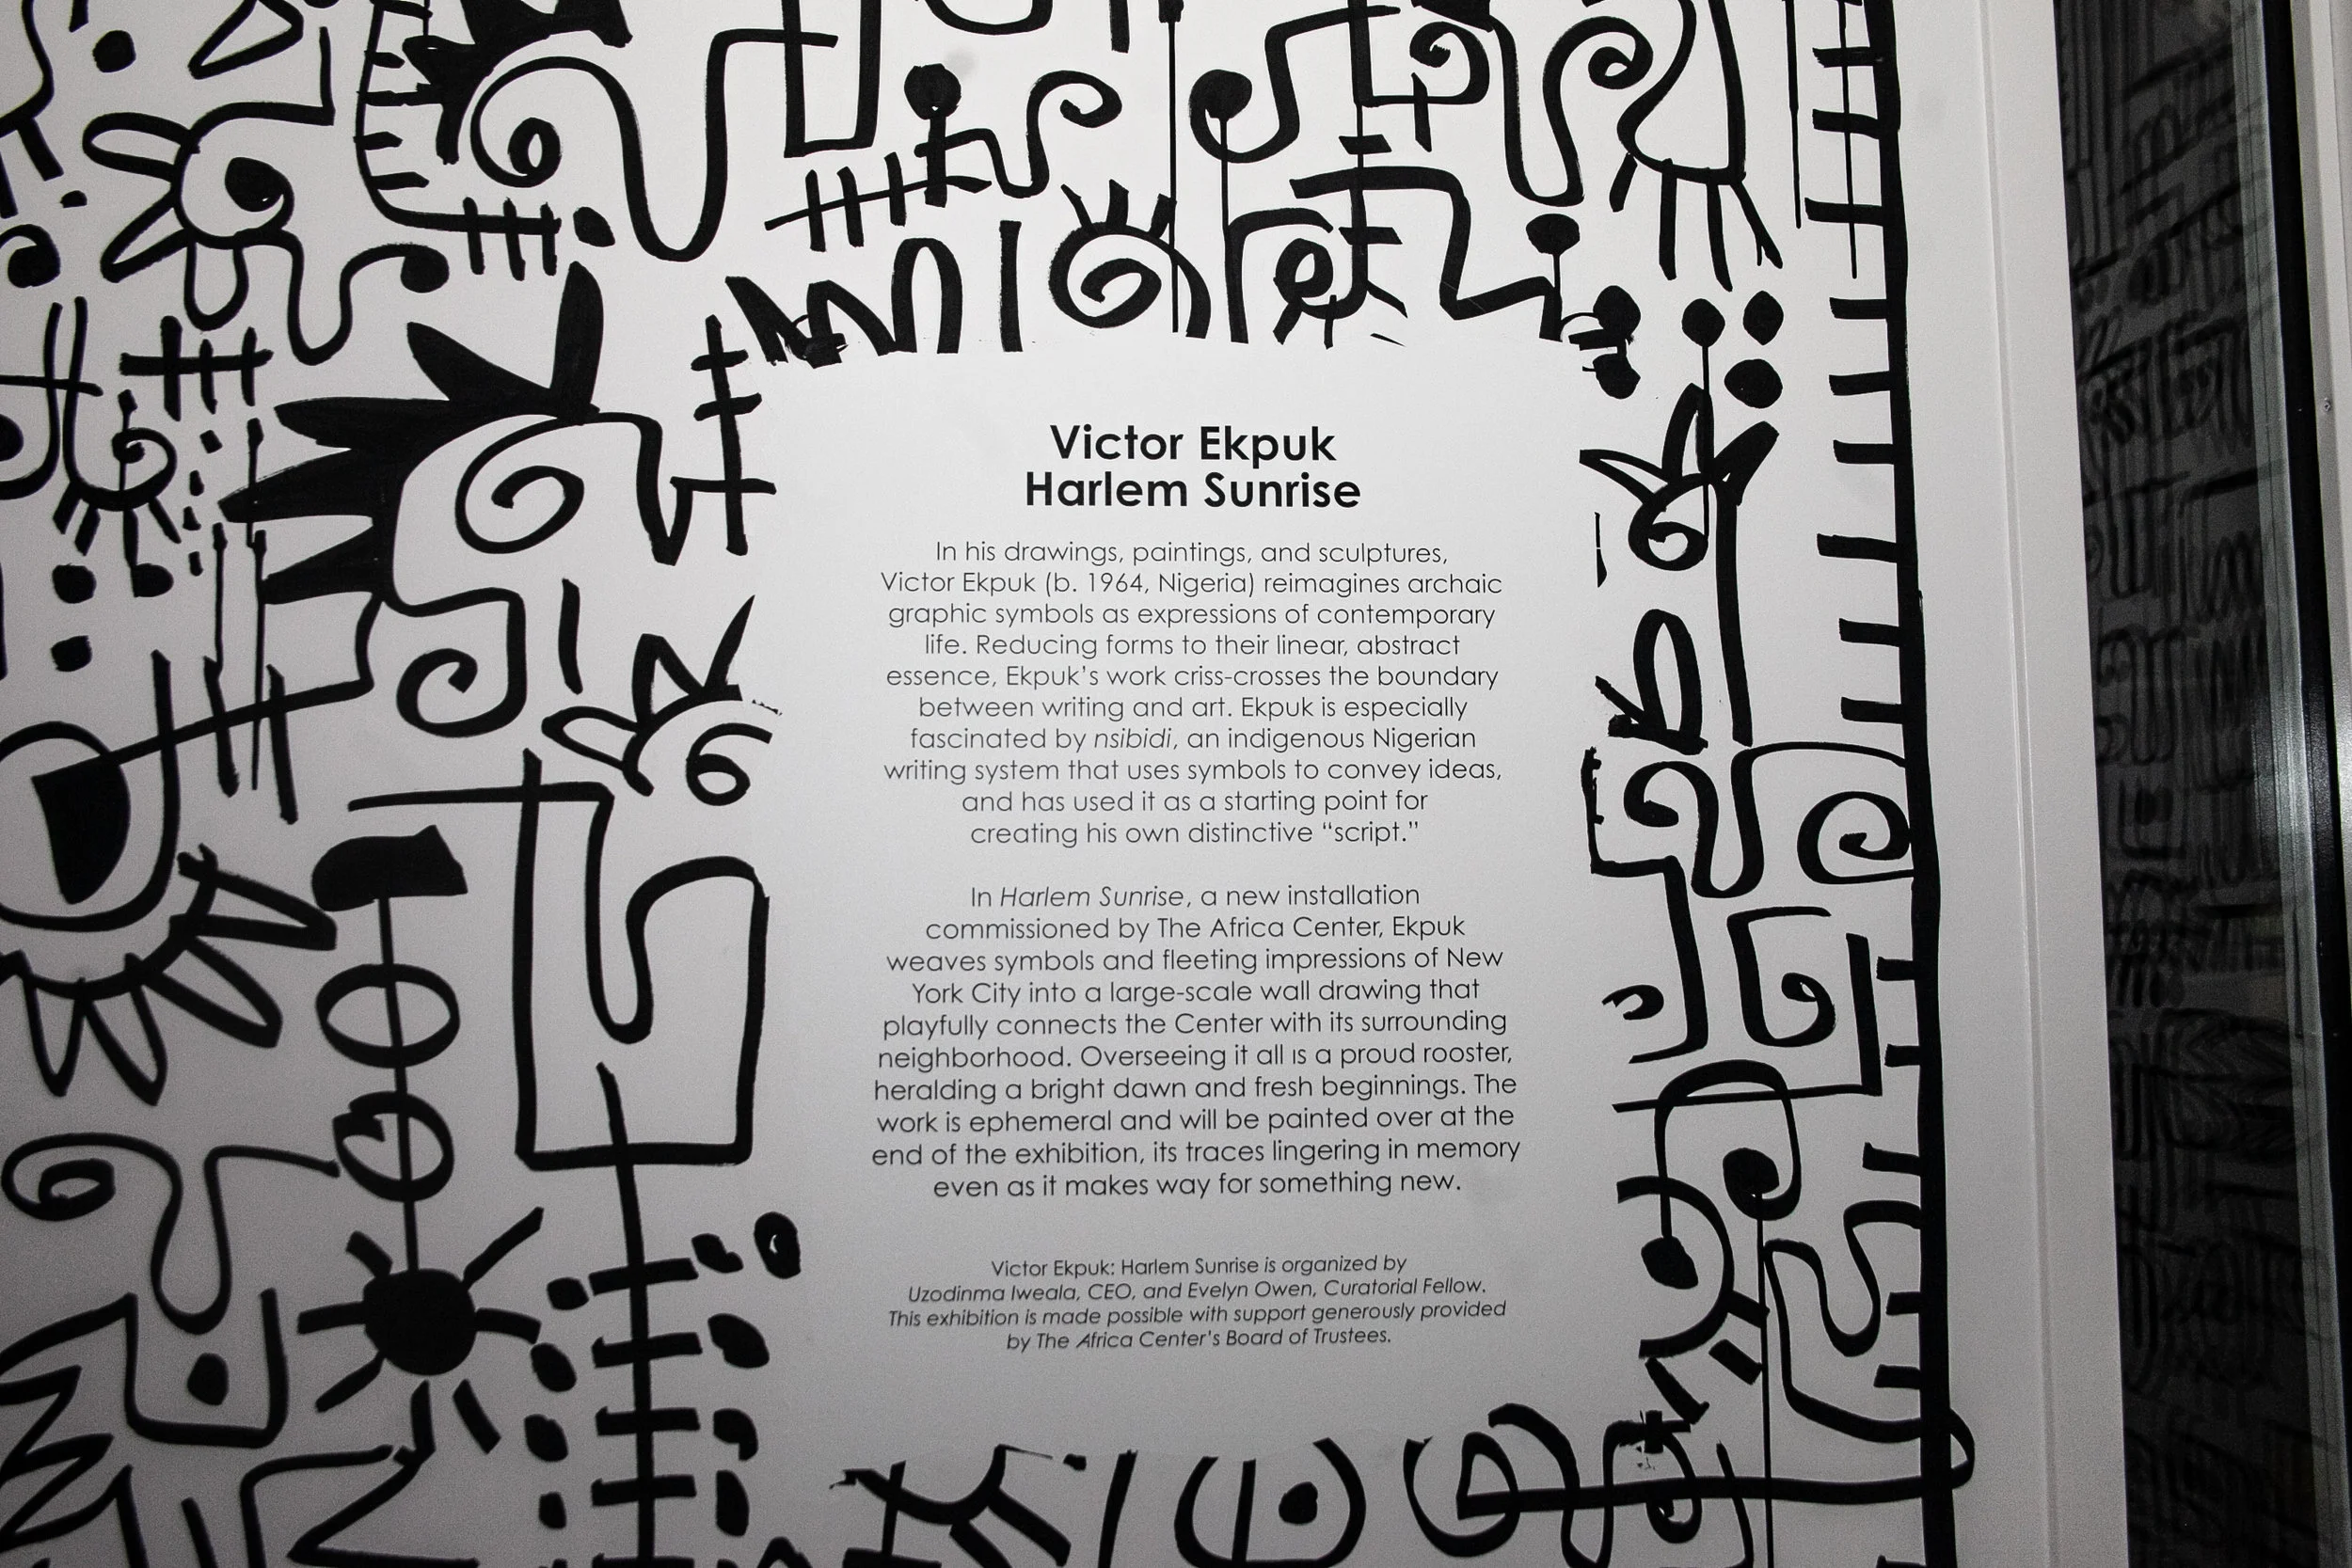 Victor Ekpuk
Harlem Sunrise
In his drawings, paintings, and sculptures,
Victor Ekpuk (b. 1964, Nigeria) reimagines archaic
graphic symbols as expressions of contemporary
life. Reducing forms to their linear, abstract
essence, Ekpuk’s work criss-crosses the boundary
between writing and art. Ekpuk is especially
fascinated by nsibidi, an indigenous Nigerian
writing system that uses symbols to convey ideas,
and has used it as a starting point for
creating his own distinctive “script.”
In Harlem Sunrise, a new installation
commissioned by The Africa Center, Ekpuk
weaves symbols and fleeting impressions of New
York City into a large-scale wall drawing that
playfully connects the Center with its surrounding
neighborhood. Overseeing it all is a proud rooster,
heralding a bright dawn and fresh beginnings. The
work is ephemeral and will be painted over at the
end of the exhibition, its traces lingering in memory
even as it makes way for something new.
Victor Ekpuk: Harlem Sunrise is organized by
Uzodinma Iweala, CEO, and Evelyn Owen, Curatorial Fellow.
This exhibition is made possible with support generously provided
by The Africa Center’s Board of Trustees.